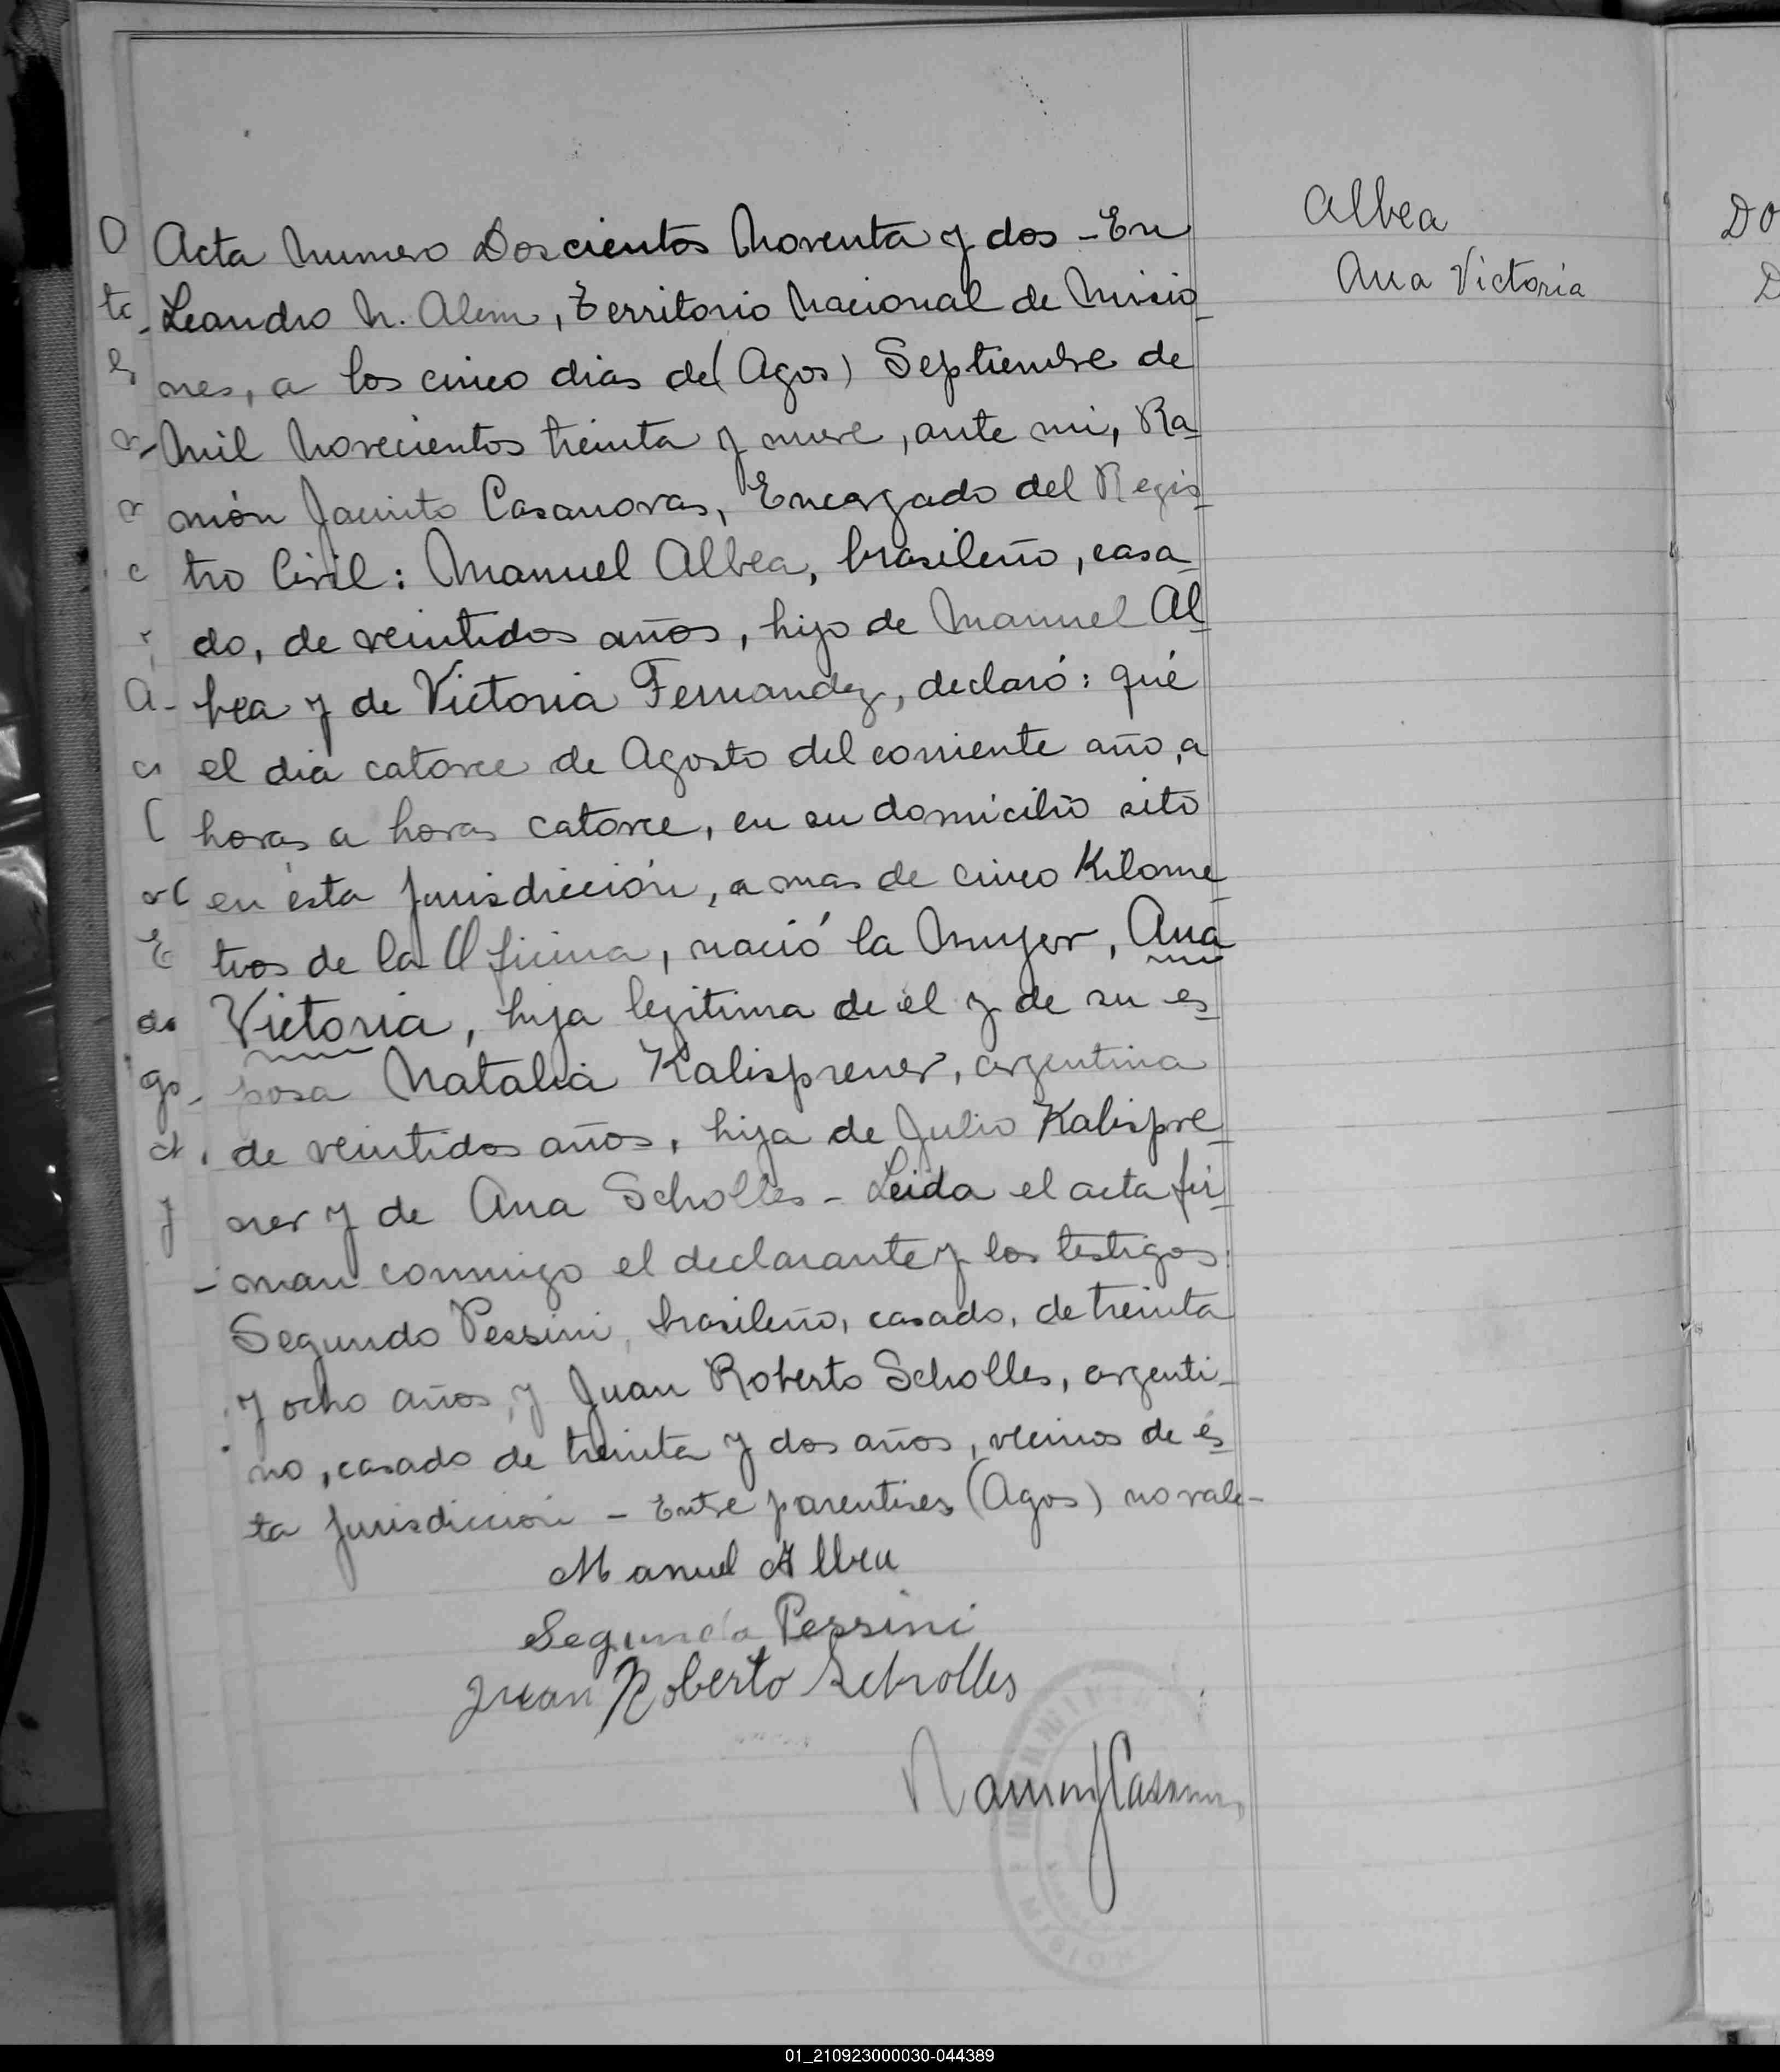 Albea
Ana Victoria
Acta Numero Doscientos Noventa y dos - En
Leandro N. Alem, Territorio Nacional de Misio-
nes, a los cinco dias de (Agos) Septiembre de
Mil Novecientos treinta y nueve, ante mi, Ra-
món Jacinto Casanovas, Encargado del Regis-
tro Civil: Manuel Albea, brasileño, casa-
do, de veintidos años, hijo de Manuel Al-
bea y de Victoria Fernandez, declaró: qué
el dia catorce de Agosto del corriente año, a
horas a horas catorce, en su domicilio sito
en ésta Jurisdicción, a mas de cinco Kilome-
tros de la Oficina, nació la Mujer, Ana
Victoria, hija legitima de él y de su es-
posa Natalia Kalisprener, argentina
de veintidos años, hija de Julio Kalispre-
ner y de Ana Scholles - Leida el acta fir-
man conmigo el declarante y los testigos
Segundo Pessini, brasileño, casado, de treinta
y ocho años, y Juan Roberto Scholles, argenti-
no, casado de treinta y dos años, vecinos de és-
ta Jurisdicción - Entre parentises (Agos) no vale-
Manuel Albea
Segundo Pessini
Juan Roberto Scholles
Ramon J Casanovas
01_210923000030-044389